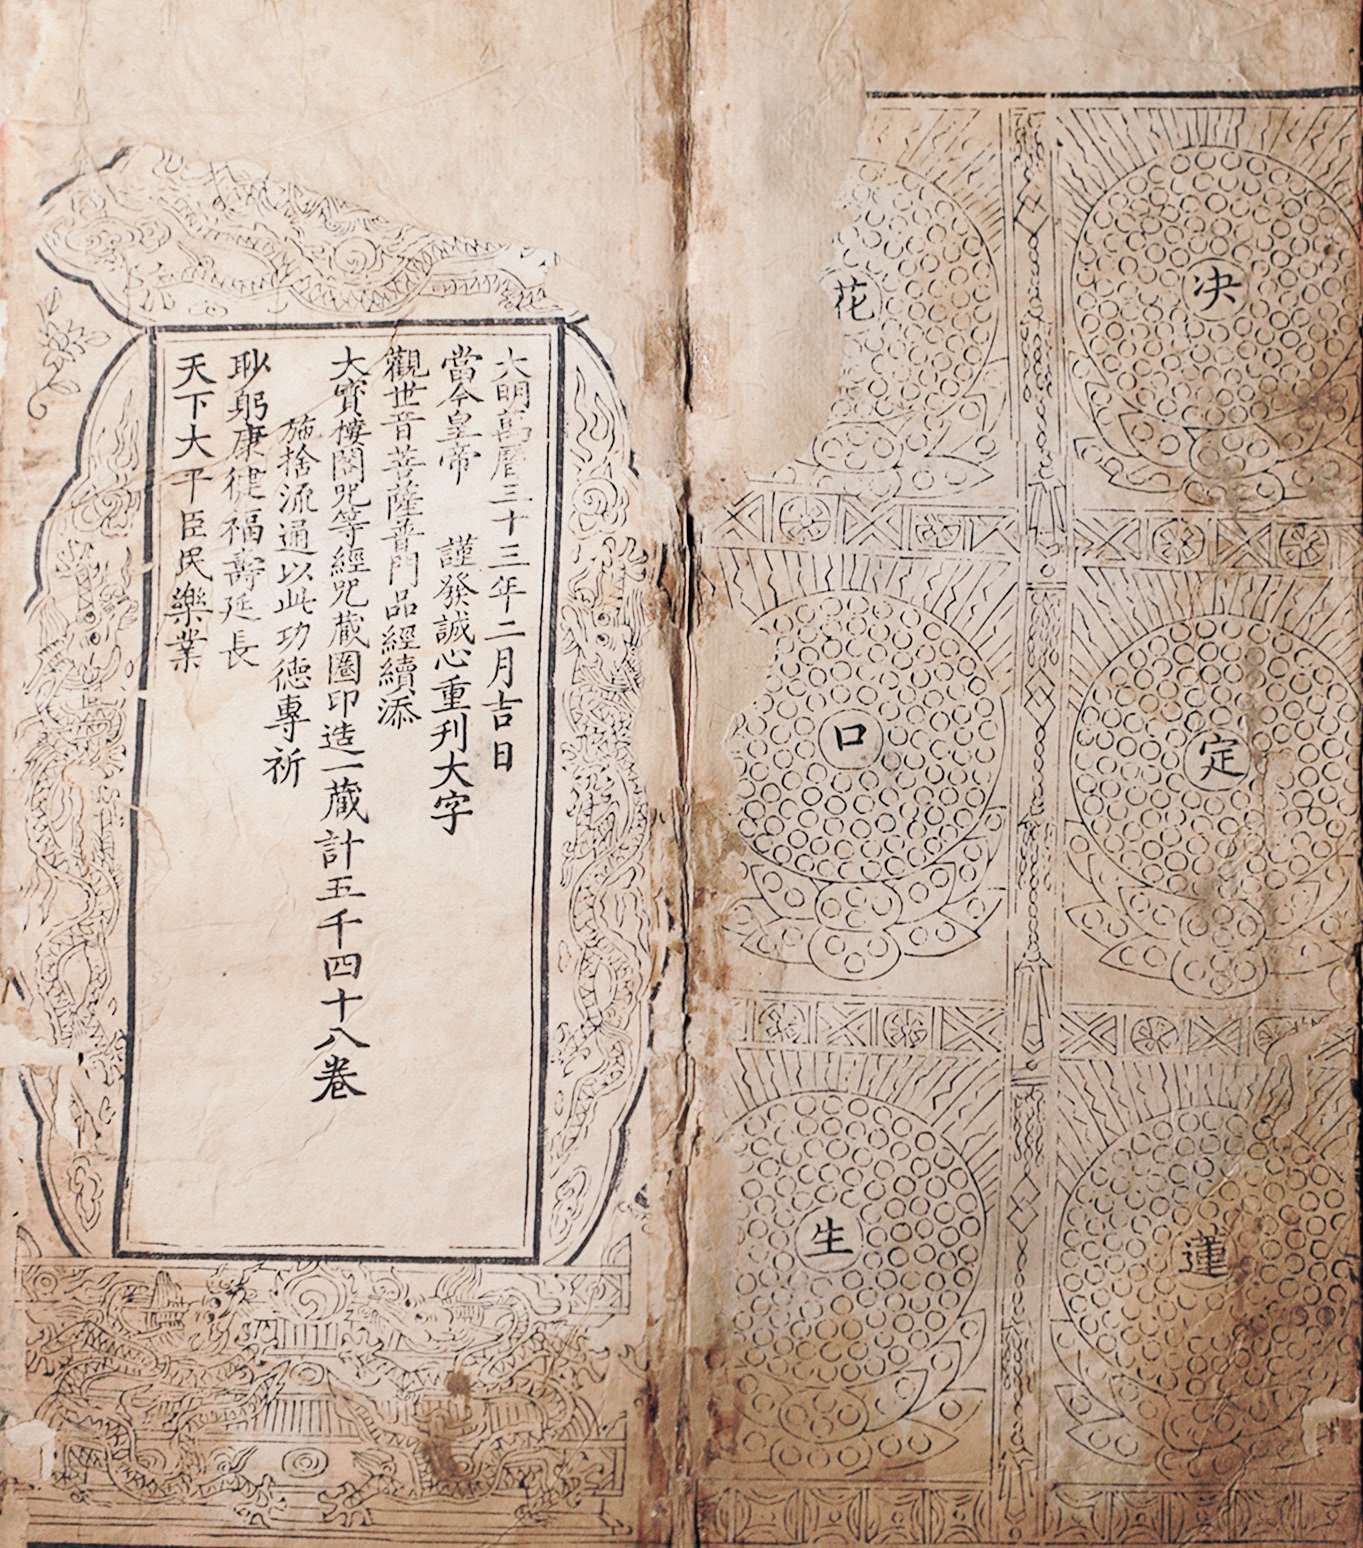 决
定
蓮
花
口
生
大明萬曆三十三年二月吉日
當今皇帝 謹發誠心重刊大字
觀世音菩薩普門品經續添
大寳樓閣咒等經咒藏圈印造一藏計五千四十八卷
施捨流通以此功德專祈
眇躬康徤福壽延長
天下大平臣民樂業